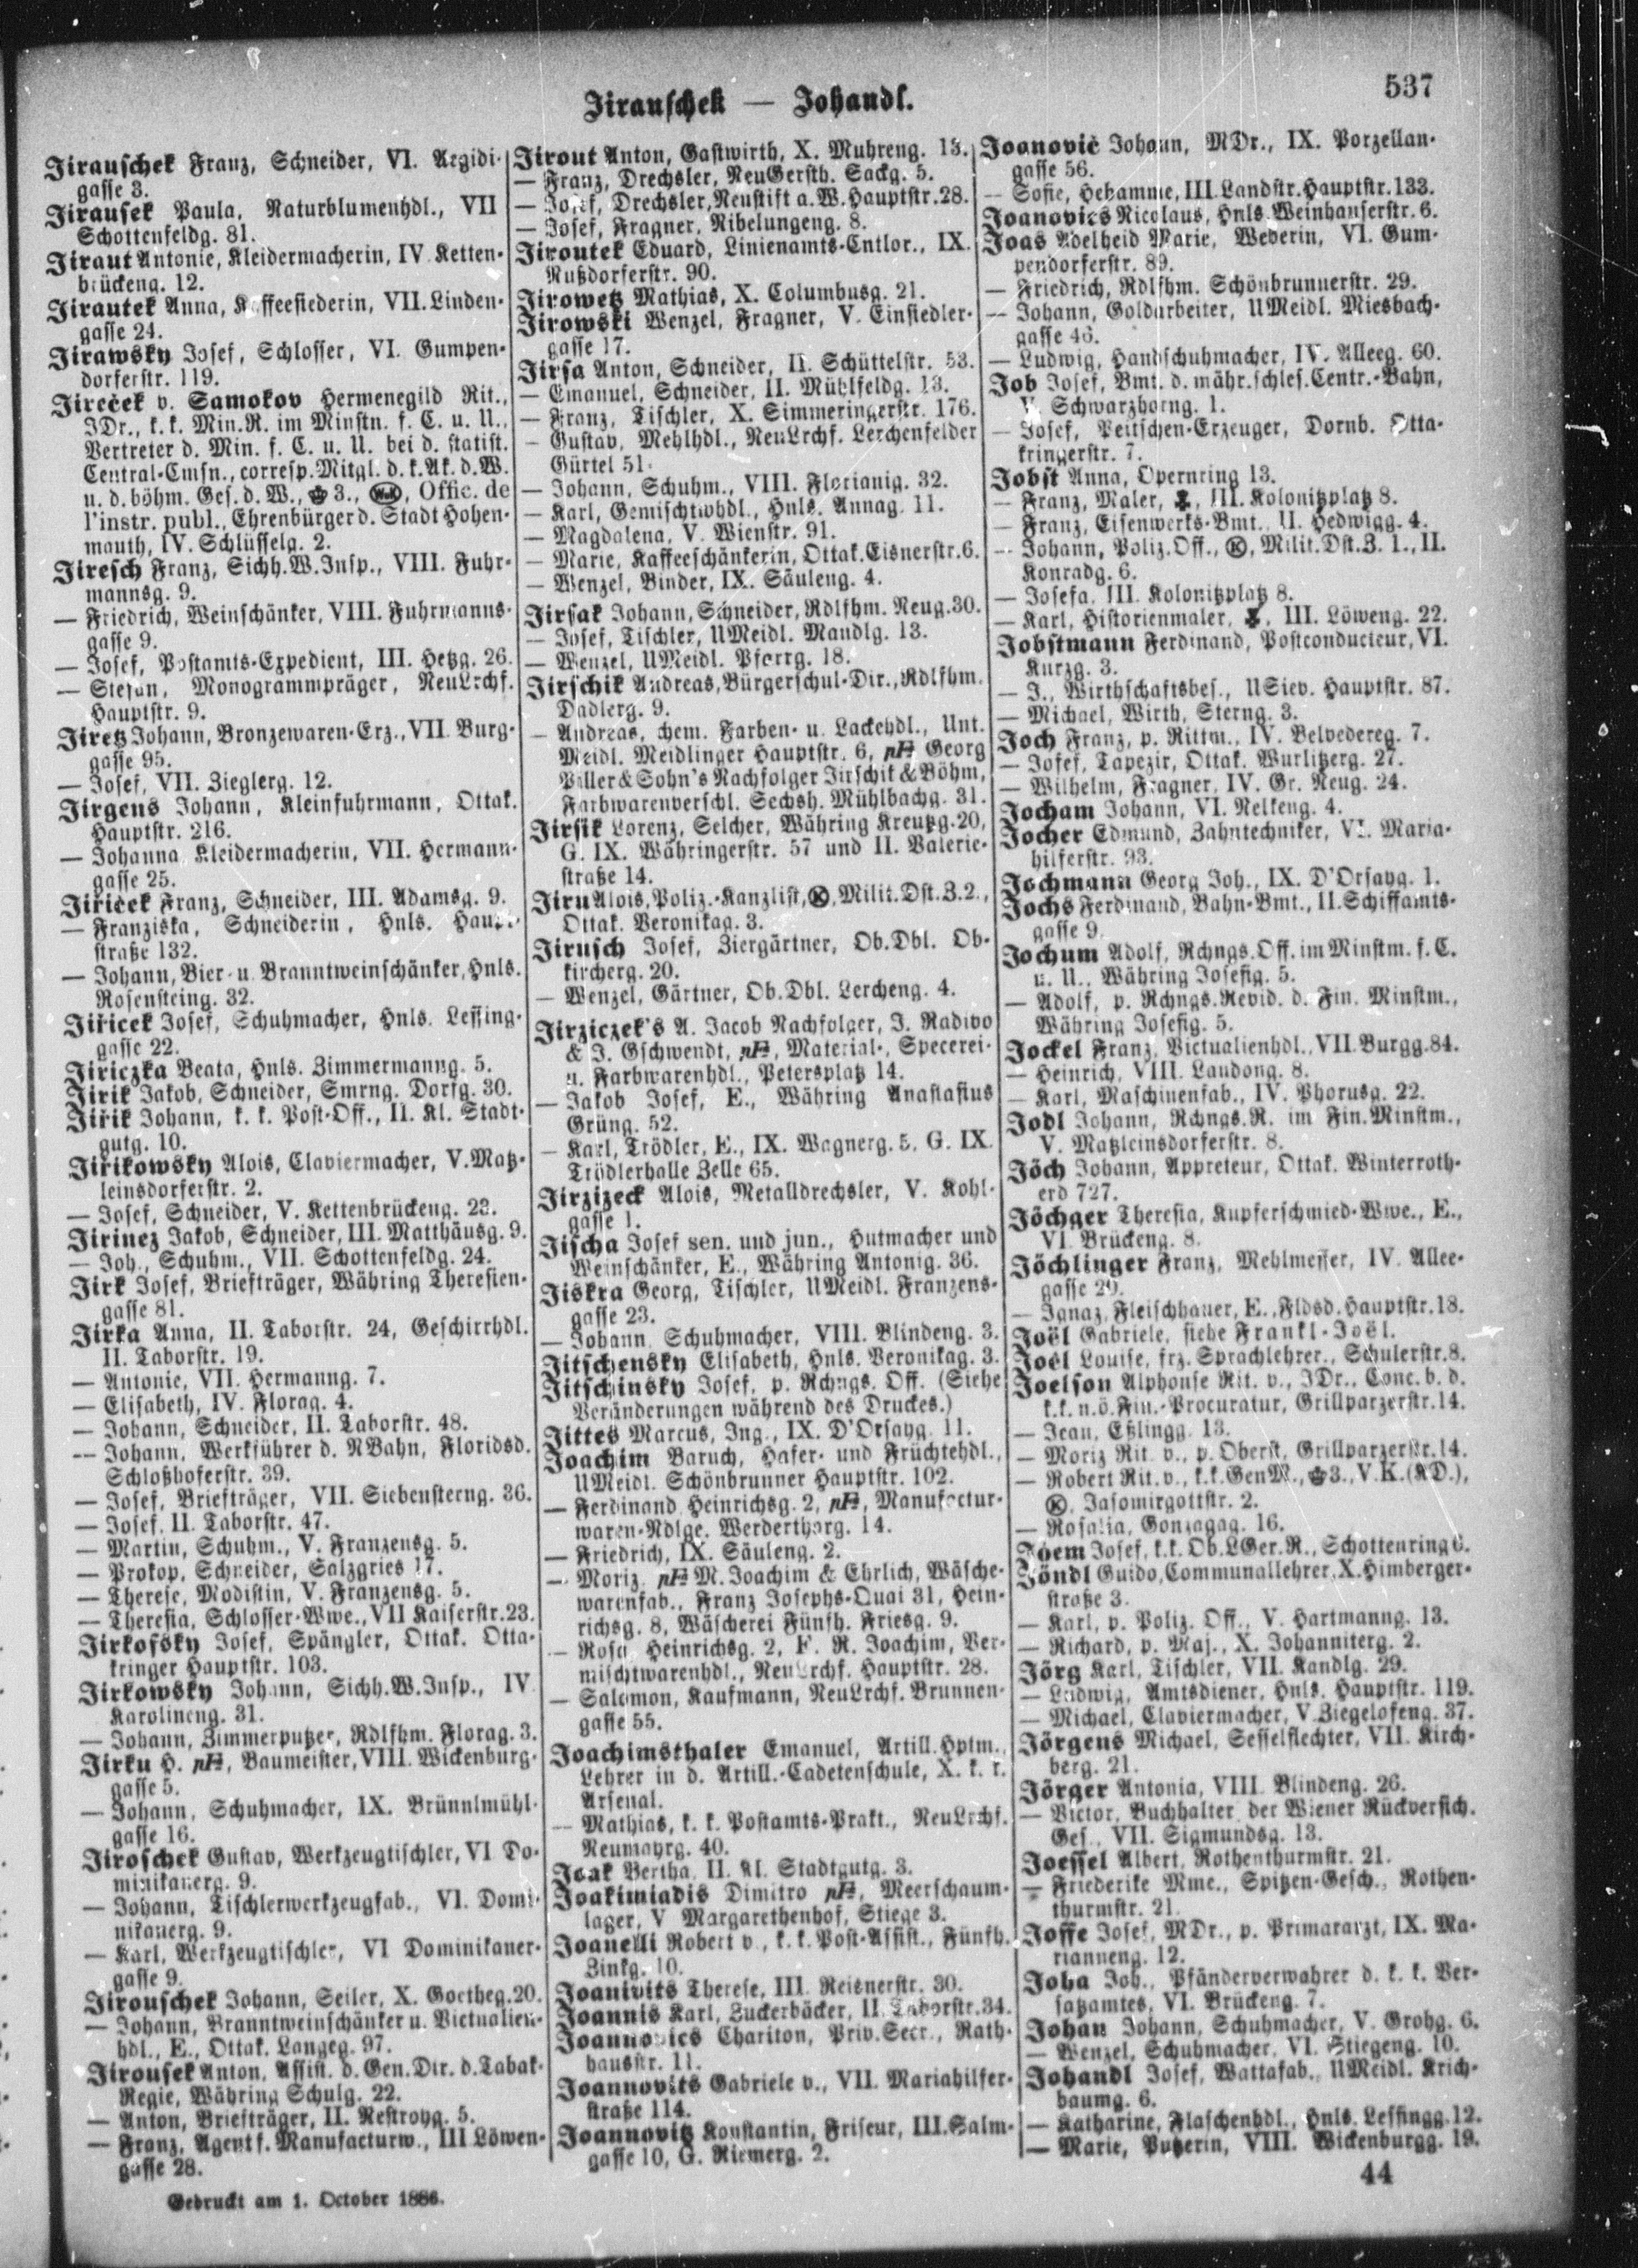 537
Jirauschek — Johandl.
Jirauschek Franz, Schneider, VI. Aegidi-
gasse 3.
Jirausek Paula, Naturblumenhdl., VII
Schottenfeldg. 81.
Jiraut Antonie, Kleidermacherin, IV. Ketten-
brückeng. 12.
Jirautek Anna, Kaffeesiederin, VII. Linden-
gasse 24.
Jirawsky Josef, Schlosser, VI. Gumpen-
dorferstr. 119.
Jireček v. Samokov Hermenegild Rit.,
JDr., k. k. Min.R. im Minstn. f. C. u. U.,
Vertreter d. Min. f. C. u. U. bei d. statist.
Central-Cmsn., corresp. Mitgl. d. k. Ak. d. W.
u. d. böhm. Ges. d. W., 3., Offic. de
l'instr. publ., Ehrenbürger d. Stadt Hohen-
mauth, IV. Schlüsselg. 2.
Jiresch Franz, Sichh.W.Insp., VIII. Fuhr-
mannsg. 9.
— Friedrich, Weinschänker, VIII. Fuhrmanns-
gasse 9.
— Josef, Postamts-Expedient, III. Hetzg. 26.
— Stefan, Monogrammpräger, NeuLrchf.
Hauptstr. 9.
Jiretz Johann, Bronzewaren-Erz., VII. Burg-
gasse 95.
— Josef, VII. Zieglerg. 12.
Jirgens Johann, Kleinfuhrmann, Ottak.
Hauptstr. 216.
— Johanna Kleidermacherin, VII. Hermann-
gasse 25.
Jiříček Franz, Schneider, III. Adamsg. 9.
— Franziska, Schneiderin, Hnls. Haupt-
straße 132.
— Johann, Bier- u. Branntweinschänker, Hnls.
Rosensteing. 32.
Jiřicek Josef, Schuhmacher, Hnls. Lessing-
gasse 22.
Jiriczka Beata, Hnls. Zimmermanng. 5.
Jirik Jakob, Schneider, Smrng. Dorfg. 30.
Jiřik Johann, k. k. Post-Off., II. Kl. Stadt-
gutg. 10.
Jiřikowsky Alois, Claviermacher, V. Matz-
leinsdorferstr. 2.
— Josef, Schneider, V. Kettenbrückeng. 23.
Jirinez Jakob, Schneider, III. Matthäusg. 9.
— Joh., Schuhm., VII. Schottenfeldg. 24.
Jirk Josef, Briefträger, Währing Theresien-
gasse 81.
Jirka Anna, II. Taborstr. 24, Geschirrhdl.
II. Taborstr. 19.
— Antonie, VII. Hermanng. 7.
— Elisabeth, IV. Florag. 4.
— Johann, Schneider, II. Taborstr. 48.
— Johann, Werkführer d. NBahn, Floridsd.
Schloßhoferstr. 39.
— Josef, Briefträger, VII. Siebensterng. 36.
— Josef, II. Taborstr. 47.
— Martin, Schuhm., V. Franzensg. 5.
— Prokop, Schneider, Salzgries 17.
— Therese, Modistin, V. Franzensg. 5.
— Theresia, Schlosser-Wwe., VII Kaiserstr. 23.
Jirkofsky Josef, Spängler, Ottak. Otta-
kringer Hauptstr. 103.
Jirkowsky Johann, Sichh.W.Insp., IV
Karolineng. 31.
— Johann, Zimmerputzer, Rdlfhm. Florag. 3.
Jirku H. Baumeister, VIII. Wickenburg-
gasse 5.
— Johann, Schuhmacher, IX. Brünnlmühl-
gasse 16.
Jiroschek Gustav, Werkzeugtischler, VI Do-
minikanerg. 9.
— Johann, Tischlerwerkzeugfab., VI. Domi-
nikanerg. 9.
— Karl, Werkzeugtischler, VI Dominikaner-
gasse 9.
Jirouschek Johann, Seiler, X. Goetheg. 20.
— Johann, Branntweinschänker u. Victualien-
hdl., E., Ottak. Langeg. 97.
Jirousek Anton, Assist. d. Gen.Dir. d. Tabak-
Regie, Währing Schulg. 22.
— Anton, Briefträger, II. Nestroyg. 5.
— Franz, Agent f. Manufacturw., III Löwen-
gasse 28.
Gedruckt am 1. October 1886.
Jirout Anton, Gastwirth, X. Muhreng. 13.
— Franz, Drechsler, NeuGersth. Sackg. 5.
— Josef, Drechsler, Neustift a. W. Hauptstr. 28.
— Josef, Fragner, Nibelungeng. 8.
Jiroutek Eduard, Linienamts-Entlor., IX.
Nußdorferstr. 90.
Jirowetz Mathias, X. Columbusg. 21.
Jirowski Wenzel, Fragner, V. Einsiedler-
gasse 17.
Jirsa Anton, Schneider, II. Schüttelstr. 53.
— Emanuel, Schneider, II. Mühlfeldg. 13.
— Franz, Tischler, X. Simmeringerstr. 176.
— Gustav, Mehlhdl., NeuLrchf. Lerchenfelder
Gürtel 51.
— Johann, Schuhm., VIII. Florianig. 32.
— Karl, Gemischtwhdl., Hnls. Annag. 11.
— Magdalena, V. Wienstr. 91.
— Marie, Kaffeeschänkerin, Ottak. Eisnerstr. 6.
— Wenzel, Binder, IX. Säuleng. 4.
Jirsak Johann, Schneider, Rdlfhm. Neug. 30.
— Josef, Tischler, UMeidl. Mandlg. 13.
— Wenzel, UMeidl. Pfarrg. 18.
Jirschik Andreas, Bürgerschul-Dir., Rdlfhm.
Dadlerg. 9.
— Andreas, chem. Farben- u. Lackehdl., Unt.
Meidl. Meidlinger Hauptstr. 6, Georg
Piller & Sohn's Nachfolger Jirschik & Böhm,
Farbwarenverschl. Sechsh. Mühlbachg. 31.
Jirsik Lorenz, Selcher, Währing Kreutzg. 20,
G. IX. Währingerstr. 57 und II. Valerie-
straße 14.
Jiru Alois, Poliz.-Kanzlist, K, Milit. Dst. Z. 2.,
Ottak. Veronikag. 3.
Jirusch Josef, Ziergärtner, Ob.Dbl. Ob-
kircherg. 20.
— Wenzel, Gärtner, Ob.Dbl. Lercheng. 4.
Jirziczek's A. Jacob Nachfolger, J. Radivo
& J. Gschwendt, Material-, Specerei-
u. Farbwarenhdl., Petersplatz 14.
— Jakob Josef, E., Währing Anastasius
Grüng. 52.
— Karl, Trödler, E., IX. Wagnerg. 5, G. IX.
Trödlerhalle Zelle 65.
Jirzizeck Alois, Metalldrechsler, V. Kohl-
gasse 1.
Jischa Josef sen. und jun., Hutmacher und
Weinschänker, E., Währing Antonig. 36.
Jiskra Georg, Tischler, UMeidl. Franzens-
gasse 23.
— Johann Schuhmacher, VIII. Blindeng. 3.
Jitschensky Elisabeth, Hnls. Veronikag. 3.
Jitschinsky Josef, p. Rchngs. Off. (Siehe
Veränderungen während des Druckes.)
Jittes Marcus, Ing., IX. D'Orsayg. 11.
Joachim Baruch, Hafer- und Früchtehdl.,
UMeidl. Schönbrunner Hauptstr. 102.
— Ferdinand Heinrichsg. 2, Manufactur-
waren-Ndlge. Werderthorg. 14.
— Friedrich, IX. Säuleng. 2.
— Moriz, M. Joachim & Ehrlich, Wäsche-
warenfab., Franz Josephs-Quai 31, Hein-
richsg. 8, Wäscherei Fünfh. Friesg. 9.
— Rosa Heinrichsg. 2, F. R. Joachim, Ver-
mischtwarenhdl., NeuLrchf. Hauptstr. 28.
— Salomon, Kaufmann, NeuLrchf. Brunnen-
gasse 55.
Joachimsthaler Emanuel, Artill. Hptm.,
Lehrer in d. Artill.-Cadetenschule, X. k. k.
Arsenal.
— Mathias, k. k. Postamts-Prakt., NeuLrchf.
Neumayrg. 40.
Joak Bertha, II. Kl. Stadtgutg. 3.
Joakimiadis Dimitro Meerschaum-
lager, V Margarethenhof, Stiege 3.
Joanelli Robert v., k. k. Post-Assist., Fünfh.
Zinkg. 10.
Joanivits Therese, III. Reisnerstr. 30.
Joannis Karl, Zuckerbäcker, II. Taborstr. 34.
Joannovics Chariton, Priv.Secr., Rath-
hausstr. 11.
Joannovits Gabriele v., VII. Mariahilfer-
straße 114.
Joannovitz Konstantin, Friseur, III. Salm-
gasse 10, G. Riemerg. 2.
Joanovič Johann, MDr., IX. Porzellan-
gasse 56.
— Sofie, Hebamme, III. Landstr. Hauptstr. 133.
Joanovics Nicolaus, Hnls. Weinhauserstr. 6.
Joas Adelheid Marie, Weberin, VI. Gum-
pendorferstr. 89.
— Friedrich, Rdlfhm. Schönbrunnerstr. 29.
— Johann, Goldarbeiter, UMeidl. Miesbach-
gasse 46.
— Ludwig, Handschuhmacher, IV. Alleeg. 60.
Job Josef, Bmt. d. mähr. schles. Centr.-Bahn,
V. Schwarzhorng. 1.
— Josef, Peitschen-Erzeuger, Dornb. Otta-
kringerstr. 7.
Jobst Anna, Opernring 13.
— Franz, Maler, III. Kolonitzplatz 8.
— Franz, Eisenwerks-Bmt., II. Hedwigg. 4.
— Johann, Poliz.Off., K, Milit. Dst. Z. 1., II.
Konradg. 6.
— Josefa, III. Kolonitzplatz 8.
— Karl, Historienmaler, III. Löweng. 22.
Jobstmann Ferdinand, Postconducteur, VI.
Kurzg. 3.
— J., Wirthschaftsbes., USiev. Hauptstr. 87.
— Michael, Wirth, Sterng. 3.
Joch Franz, p. Rittm., IV. Belvedereg. 7.
— Josef, Tapezir, Ottak. Wurlitzerg. 27.
— Wilhelm, Fragner, IV. Gr. Neug. 24.
Jocham Johann, VI. Nelkeng. 4.
Jocher Edmund, Zahntechniker, VI. Maria-
hilferstr. 93.
Jochmann Georg Joh., IX. D'Orsayg. 1.
Jochs Ferdinand, Bahn-Bmt., II. Schiffamts-
gasse 9.
Jochum Adolf, Rchngs.Off. im Minstm. f. C.
u. U., Währing Josefig. 5.
— Adolf, p. Rchngs.Revid. d. Fin. Minstm.,
Währing Josefig. 5.
Jockel Franz, Victualienhdl., VII. Burgg. 84.
— Heinrich, VIII. Laudong. 8.
— Karl, Maschinenfab., IV. Phorusg. 22.
Jodl Johann, Rchngs.R. im Fin.Minstm.,
V. Matzleinsdorferstr. 8.
Jöch Johann, Appreteur, Ottak. Winterroth-
erd 727.
Jöchger Theresia, Kupferschmied-Wwe., E.,
VI. Brückeng. 8.
Jöchlinger Franz, Mehlmesser, IV. Allee-
gasse 29.
— Ignaz, Fleischhauer, E., Fldsd. Hauptstr. 18.
Joël Gabriele, siehe Frankl-Joël.
Joël Louise, frz. Sprachlehrer., Schulerstr. 8.
Joelson Alphonse Rit. v., JDr., Conc. b. d.
k. k. n. ö. Fin.-Procuratur, Grillparzerstr. 14.
— Jean, Eßlingg. 13.
— Moriz Rit. v., p. Oberst, Grillparzerstr. 14.
— Robert Rit. v., k. k. GenM., 3., V. K. (KD.),
K, Jasomirgottstr. 2.
— Rosalia, Gonzagag. 16.
Joem Josef, k. k. Ob.LGer.R., Schottenring 6.
Jöndl Guido, Communallehrer, X. Himberger-
straße 3.
— Karl, p. Poliz. Off., V. Hartmanng. 13.
— Richard, p. Maj., X. Johanniterg. 2.
Jörg Karl, Tischler, VII. Kandlg. 29.
— Ludwig, Amtsdiener, Hnls. Hauptstr. 119.
— Michael, Claviermacher, V. Ziegelofeng. 37.
Jörgens Michael, Sesselflechter, VII. Kirch-
berg. 21.
Jörger Antonia, VIII. Blindeng. 26.
— Victor, Buchhalter der Wiener Rückversich.
Ges., VII. Sigmundsg. 13.
Joessel Albert, Rothenthurmstr. 21.
— Friederike Mme., Spitzen-Gesch., Rothen-
thurmstr. 21.
Joffe Josef, MDr., p. Primararzt, IX. Ma-
rianneng. 12.
Joha Joh., Pfänderverwahrer d. k. k. Ver-
satzamtes, VI. Brückeng. 7.
Johan Johann, Schuhmacher, V. Grohg. 6.
— Wenzel, Schuhmacher, VI. Stiegeng. 10.
Johandl Josef, Wattafab., UMeidl. Krich-
baumg. 6.
— Katharine, Flaschenhdl., Hnls. Lessingg. 12.
— Marie, Putzerin, VIII. Wickenburgg. 19.
44